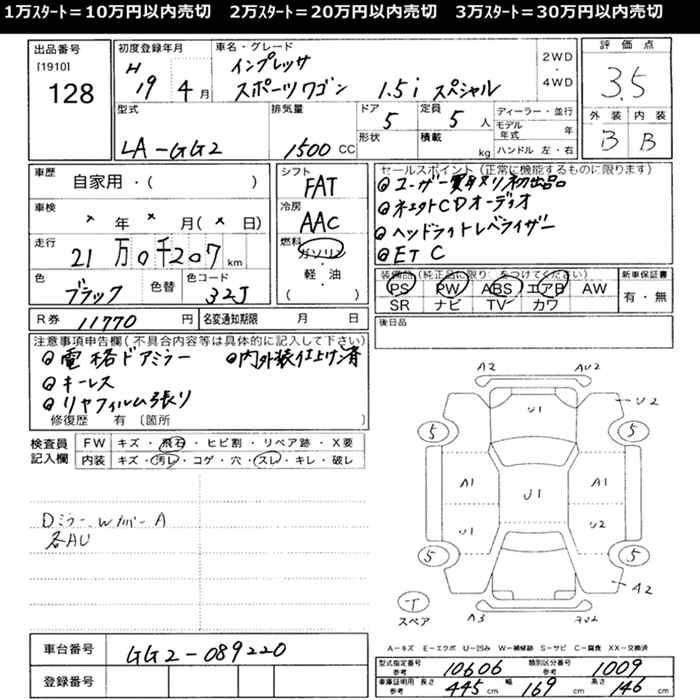 1万ｽﾀｰﾄ＝10万円以内売切　2万ｽﾀｰﾄ＝20万円以内売切　3万ｽﾀｰﾄ＝30万円以内売切
出品番号
[1910]
128
初度登録年月
H19 4月
車名・グレード
インプレッサ
スポーツワゴン 1.5i スペシャル
2WD
・
4WD
評価点
3.5
外装 内装
B B
型式
LA-GG2
排気量
1500 CC
ドア
5
形状
定員
5 人
積載
kg
ディーラー・並行
モデル年式 年
ハンドル 左・右
車歴
自家用・( )
車検
× 年 × 月 (× 日)
走行
21万0千207 km
色
ブラック
色替
色コード
32J
シフト
FAT
冷房
AAC
燃料
ガソリン
・
軽・油
( )
セールスポイント (正常に機能するものに限ります)
@ユーザー買取り初出品
@ネエトCDオーディオ
@ヘッドライトレベライザー
@ETC
装備品 (純正品に限り○をつけてください)
PS PW ABS エアB AW
SR ナビ TV カワ
新車保証書
有・無
R券 11770 円
名変通知期限 月 日
後日品
注意事項申告欄 (不具合内容等は具体的に記入して下さい)
@電格ドアミラー @内外装仕上げ済
@キーレス
@リヤフィルム張り
修復歴 有 [箇所 ]
検査員
記入欄
FW キズ・飛石・ヒビ割・リペア跡・X要
内装 キズ・汚レ・コゲ・穴・スレ・キレ・破レ
Dミラー、Wカバー A
各AU
A2 AU2
U1
U2
5 5
A1 U1 A1
U1 U2
5 5
A2
A3 AU2
T
スペア
A－キズ E－エクボ U－凹み W－補修跡 S－サビ C－腐食 XX－交換済
車台番号
GG2-089220
登録番号
型式指定番号
参考
10606
類別区分番号
参考
1009
車庫証明用
参考
長さ 445 cm 幅 169 cm 高さ 146 cm